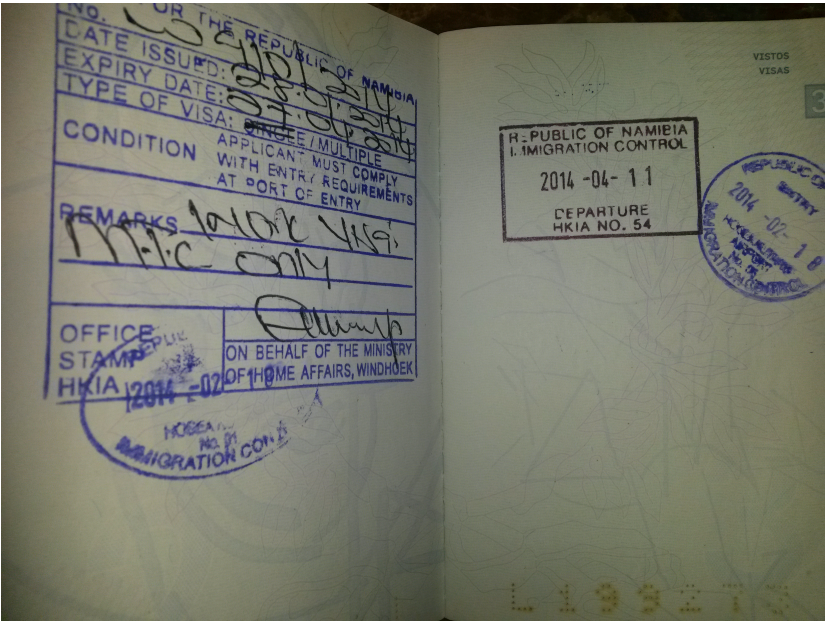 No.
FOR THE REPUBLIC OF NAMIBIA
DATE ISSUED:
EXPIRY DATE:
TYPE OF VISA: SINGLE/MULTIPLE
CONDITION
APPLICANT MUST COMPLY
WITH ENTRY REQUIREMENTS
AT PORT OF ENTRY
REMARKS work visa
M.I.C only
OFFICE
STAMP
HKIA
ON BEHALF OF THE MINISTRY
OF HOME AFFAIRS, WINDHOEK
REPUB
2014 -02- 18
HOSEA
No. 01
IMMIGRATION CON
VISTOS
VISAS
3
REPUBLIC OF NAMIBIA
IMMIGRATION CONTROL
2014 -04- 11
DEPARTURE
HKIA NO. 54
REPUBLIC OF
ENTRY
2014 -02- 18
AIRPORT
IMMIGRATION